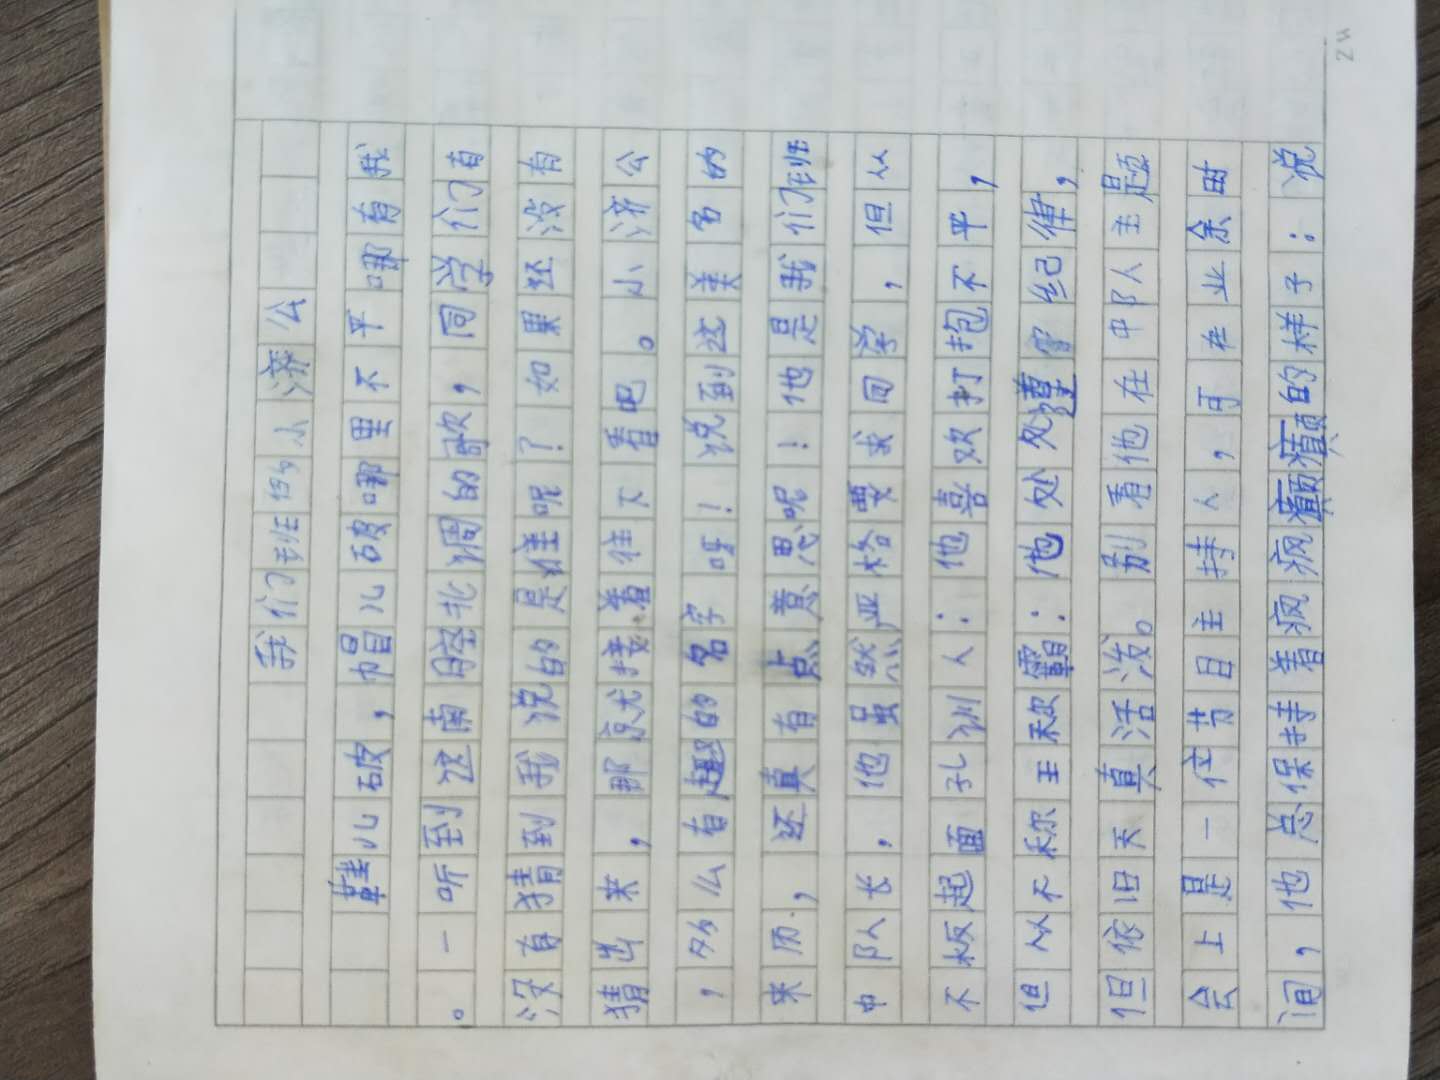 我们班的小济公
鞋儿破，帽儿破哪里不平哪有我
。一听到这南腔北调的歌，同学们有
没有猜到我说的是谁呢？如果还没有
猜出来，那就接着往下看吧。小济公
，多么有趣的名字呀！说到这美名的
来历，还真有点意思呢！他是我们班
中队长，他虽然严格要求同学，但从
不板起面孔训人：他喜欢打抱不平，
但从不称王称霸：他处处遵守纪律，
但依旧天真活泼。别看他在中队主题
会上是一位节目主持人，可在业余时
间，他总保持着疯疯癫癫的样子：说